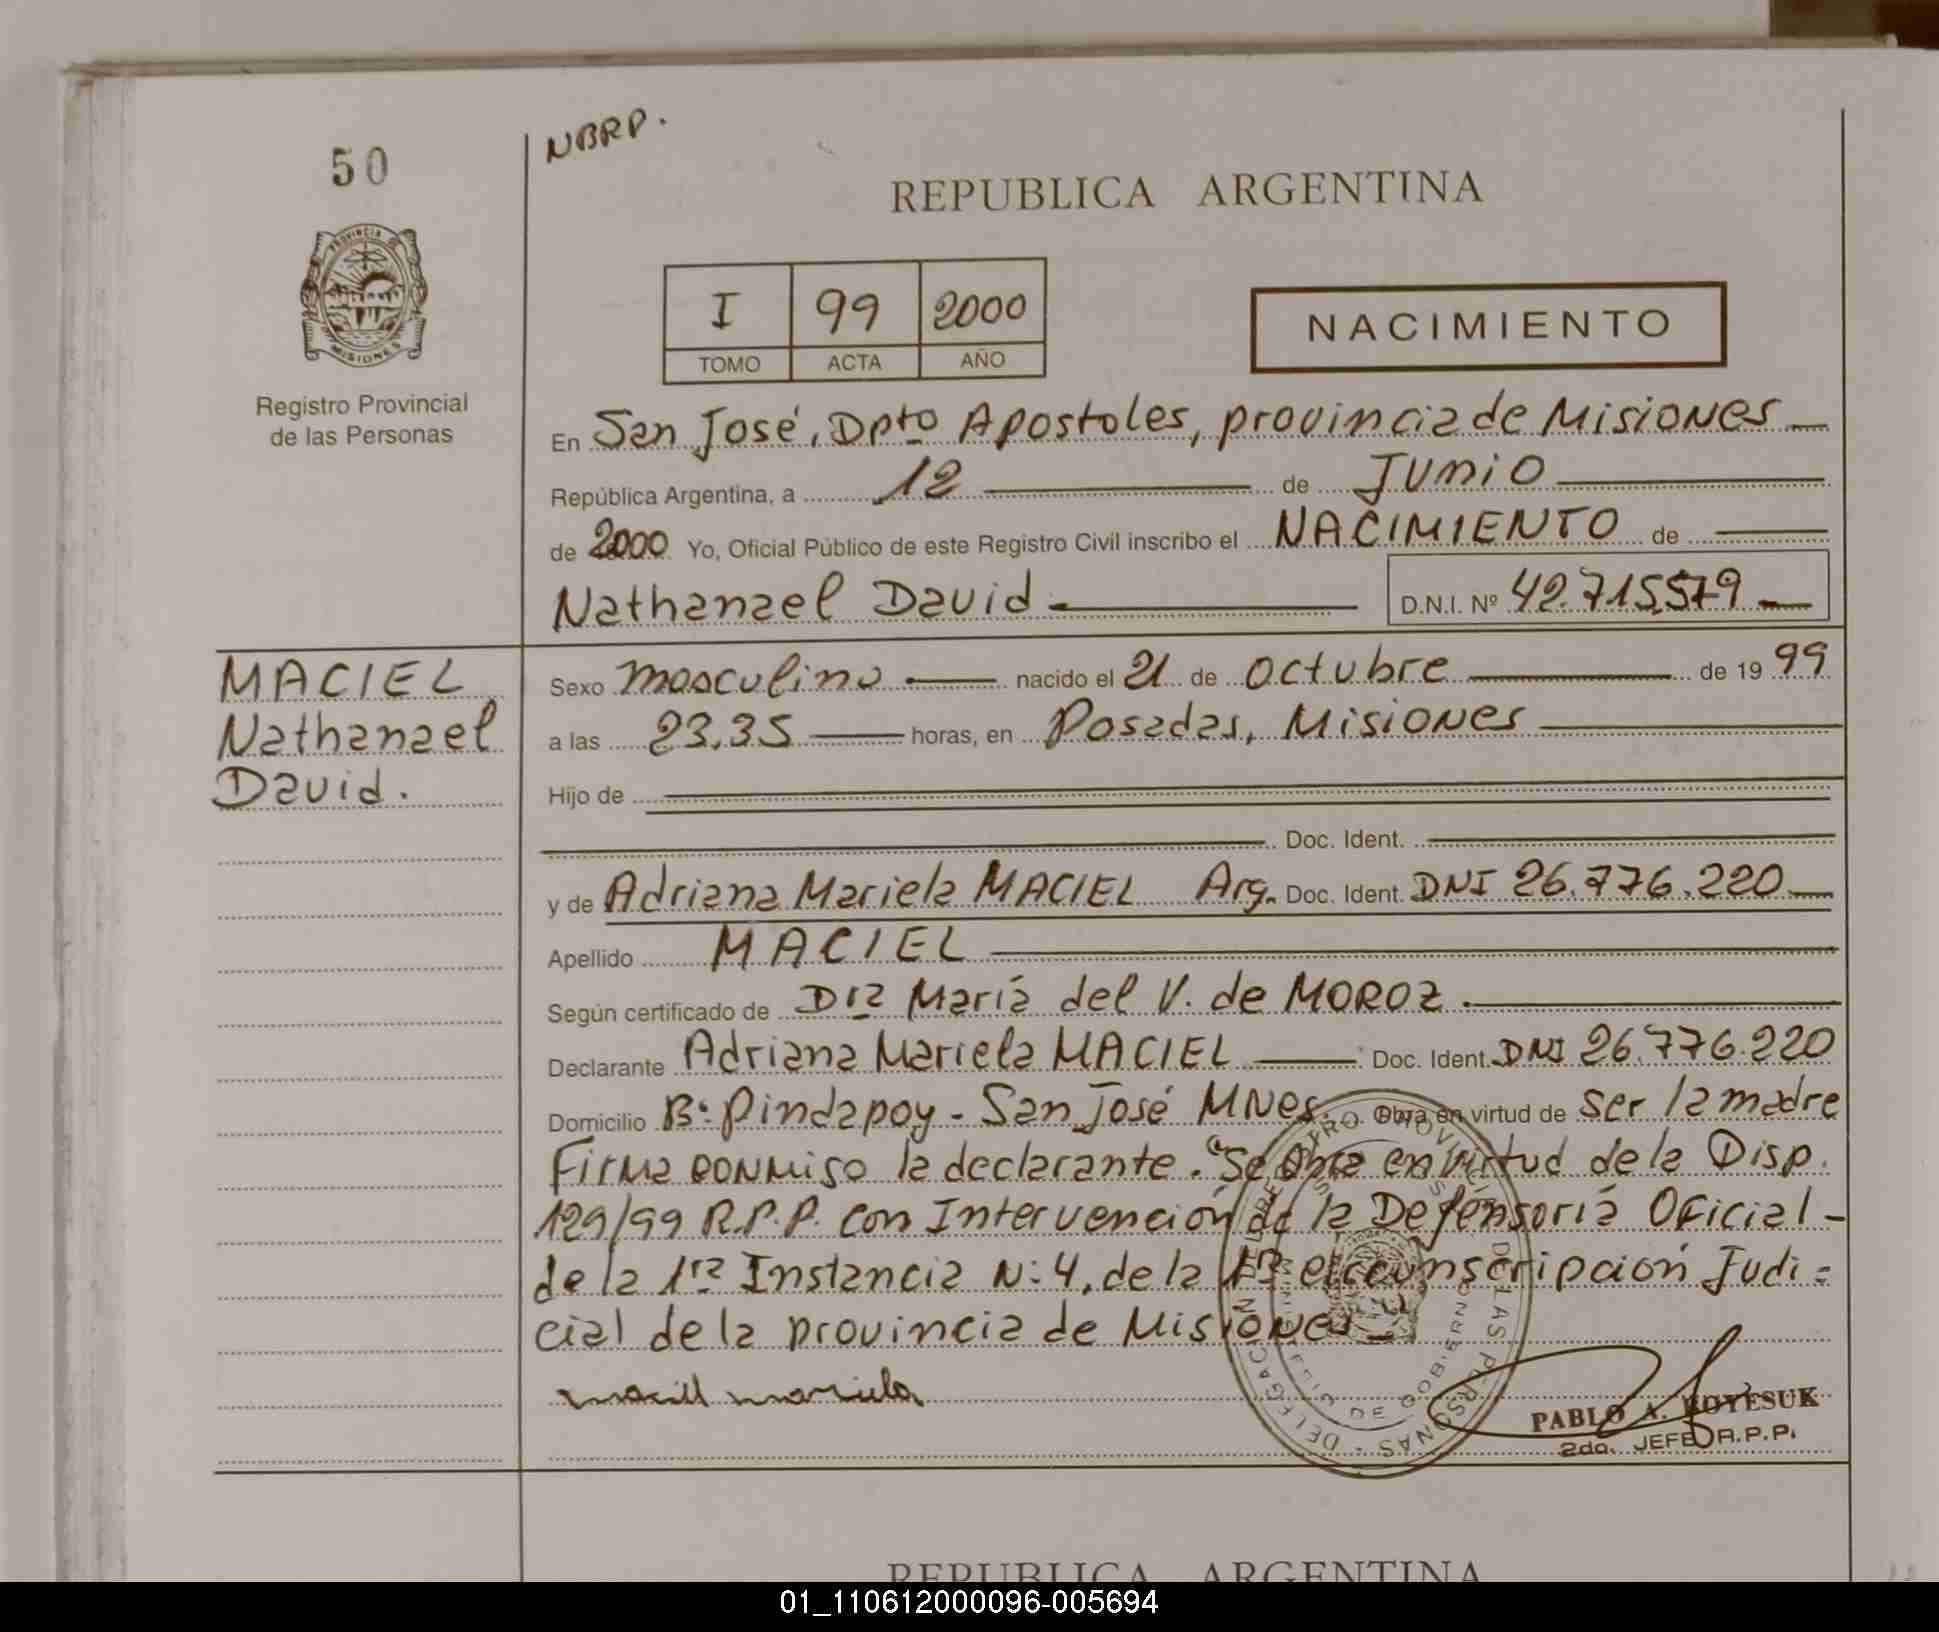 50
NBRP.
REPUBLICA ARGENTINA
PROVINCIA DE
MISIONES
Registro Provincial
de las Personas
I 99 2000
TOMO ACTA AÑO
NACIMIENTO
En San José, Dpto Apostoles, provincia de Misiones
República Argentina, a 12 de Junio
de 2000 Yo, Oficial Público de este Registro Civil inscribo el NACIMIENTO de
Nathanael David D.N.I. Nº 42.715.579
MACIEL
Nathanael
David.
Sexo masculino nacido el 21 de octubre de 1999
a las 23,35 horas, en Posadas, Misiones
Hijo de
Doc. Ident.
y de Adriana Mariela MACIEL Arg. Doc. Ident. DNI 26.776.220
Apellido MACIEL
Según certificado de Dra María del V. de MOROZ.
Declarante Adriana Mariela MACIEL Doc. Ident. DNI 26.776.220
Domicilio Bº Pindapoy - San José MNes. Obra en virtud de ser la madre
Firma conmigo la declarante. "Se obra en virtud de la Disp.
129/99 R.P.P. con Intervención de la Defensoría Oficial -
de la 1ra Instancia N: 4, de la 1ra circunscripción Judi=
cial de la provincia de Misiones -
maciel mariela
PABLO A. KOYESUK
2do. JEFE R.P.P.
REPUBLICA ARGENTINA
01_110612000096-005694